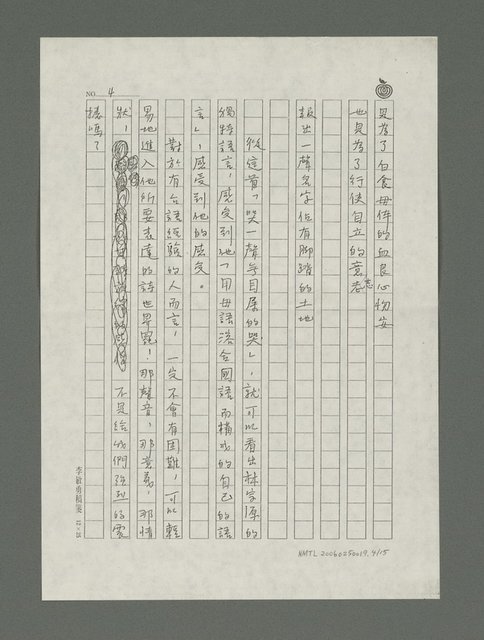 是為了白食母伴的血良心物安
也是為了行使自立的意志
報出一聲名字佔有腳踏的土地
從這首「哭一聲無目屎的哭」,就可以看出林宗源的
獨特語言,感受到他「用母語溶合國語而構成的自己的語
言」,感受到他的感受。
對於有台語經驗的人而言,一定不會有困難,可以輕
易地進入他所要表達的詩世界罷!那聲音,那意義,那情
狀,不是給我們強烈的震
撼嗎?
NO. 4
李敏勇稿箋
NMTL 20060250019. 4/15